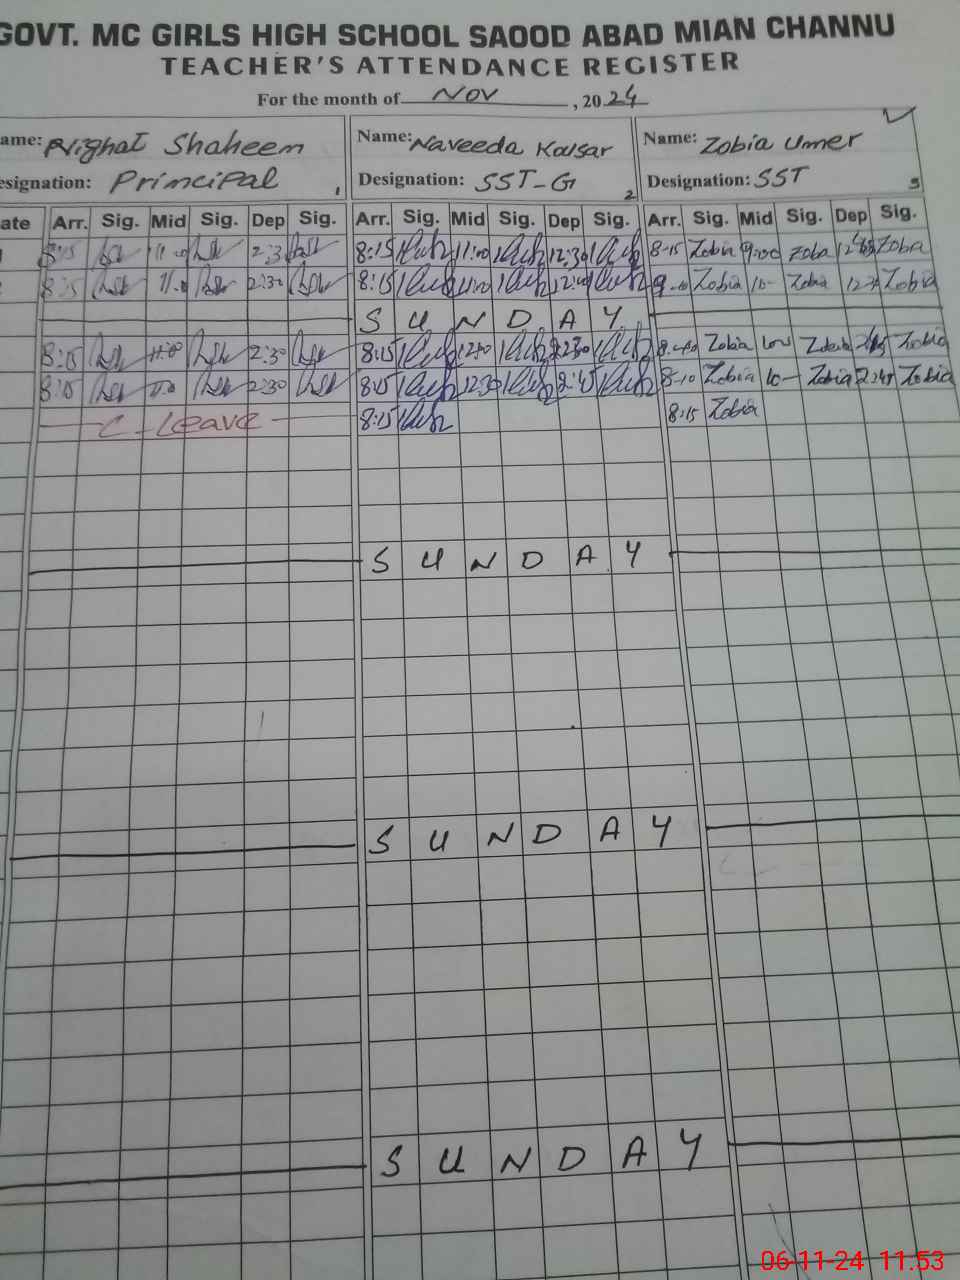 GOVT. MC GIRLS HIGH SCHOOL SAOOD ABAD MIAN CHANNU
TEACHER'S ATTENDANCE REGISTER
For the month of Nov , 2024
ame: Nighat Shaheen Name: Naveeda Kausar Name: Zobia Umer
esignation: Principal 1 Designation: SST-G 2 Designation: SST 3
ate Arr. Sig. Mid Sig. Dep Sig. Arr. Sig. Mid Sig. Dep Sig. Arr. Sig. Mid Sig. Dep Sig.
8:15 11:00 2:30 8:15 11:00 12:30 8-15 Zobia 9:00 Zobia Zobia
8:15 2:30 8:15 Zobia 10- Zobia Zobia
S U N D A Y
8:15 2:30 8:15 Zobia Zobia Zobia
8:15 2:30 8:15 12:30 8-10 Zobia 10- Zobia 2:45 Zobia
C-Leave 8:15 8:15 Zobia
S U N D A Y
S U N D A Y
S U N D A Y
06-11-24 11.53